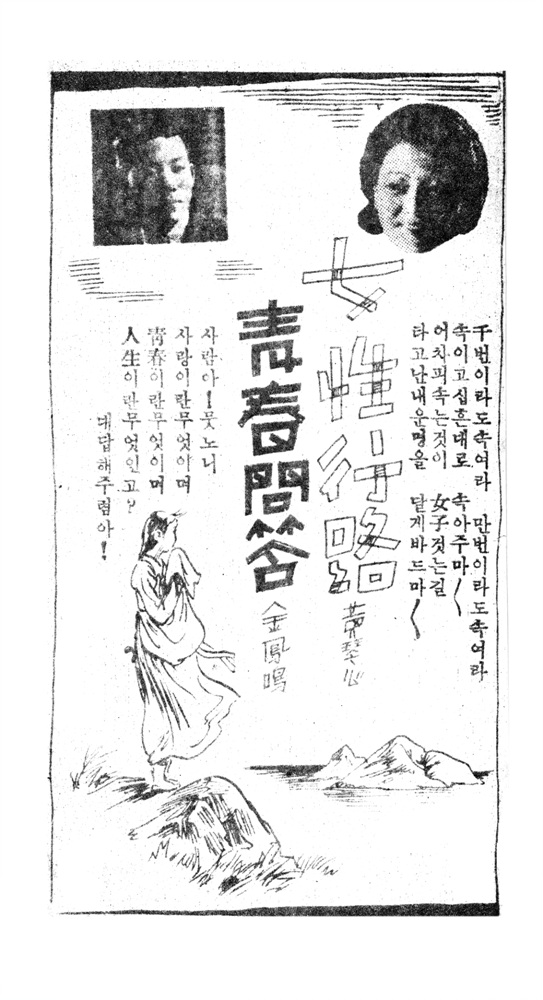 千번이라도속여라 만번이라도속여라
속이고십흔대로 속아주마〱
어차피속는것이 女子것는길
타고난내운명을 달게바드마〱
女性行路
黃琴心
青春問答
金鳳鳴
사람아!뭇노니
사랑이란무엇이며
青春이란무엇이며
人生이란무엇인고?
대답해주렴아!